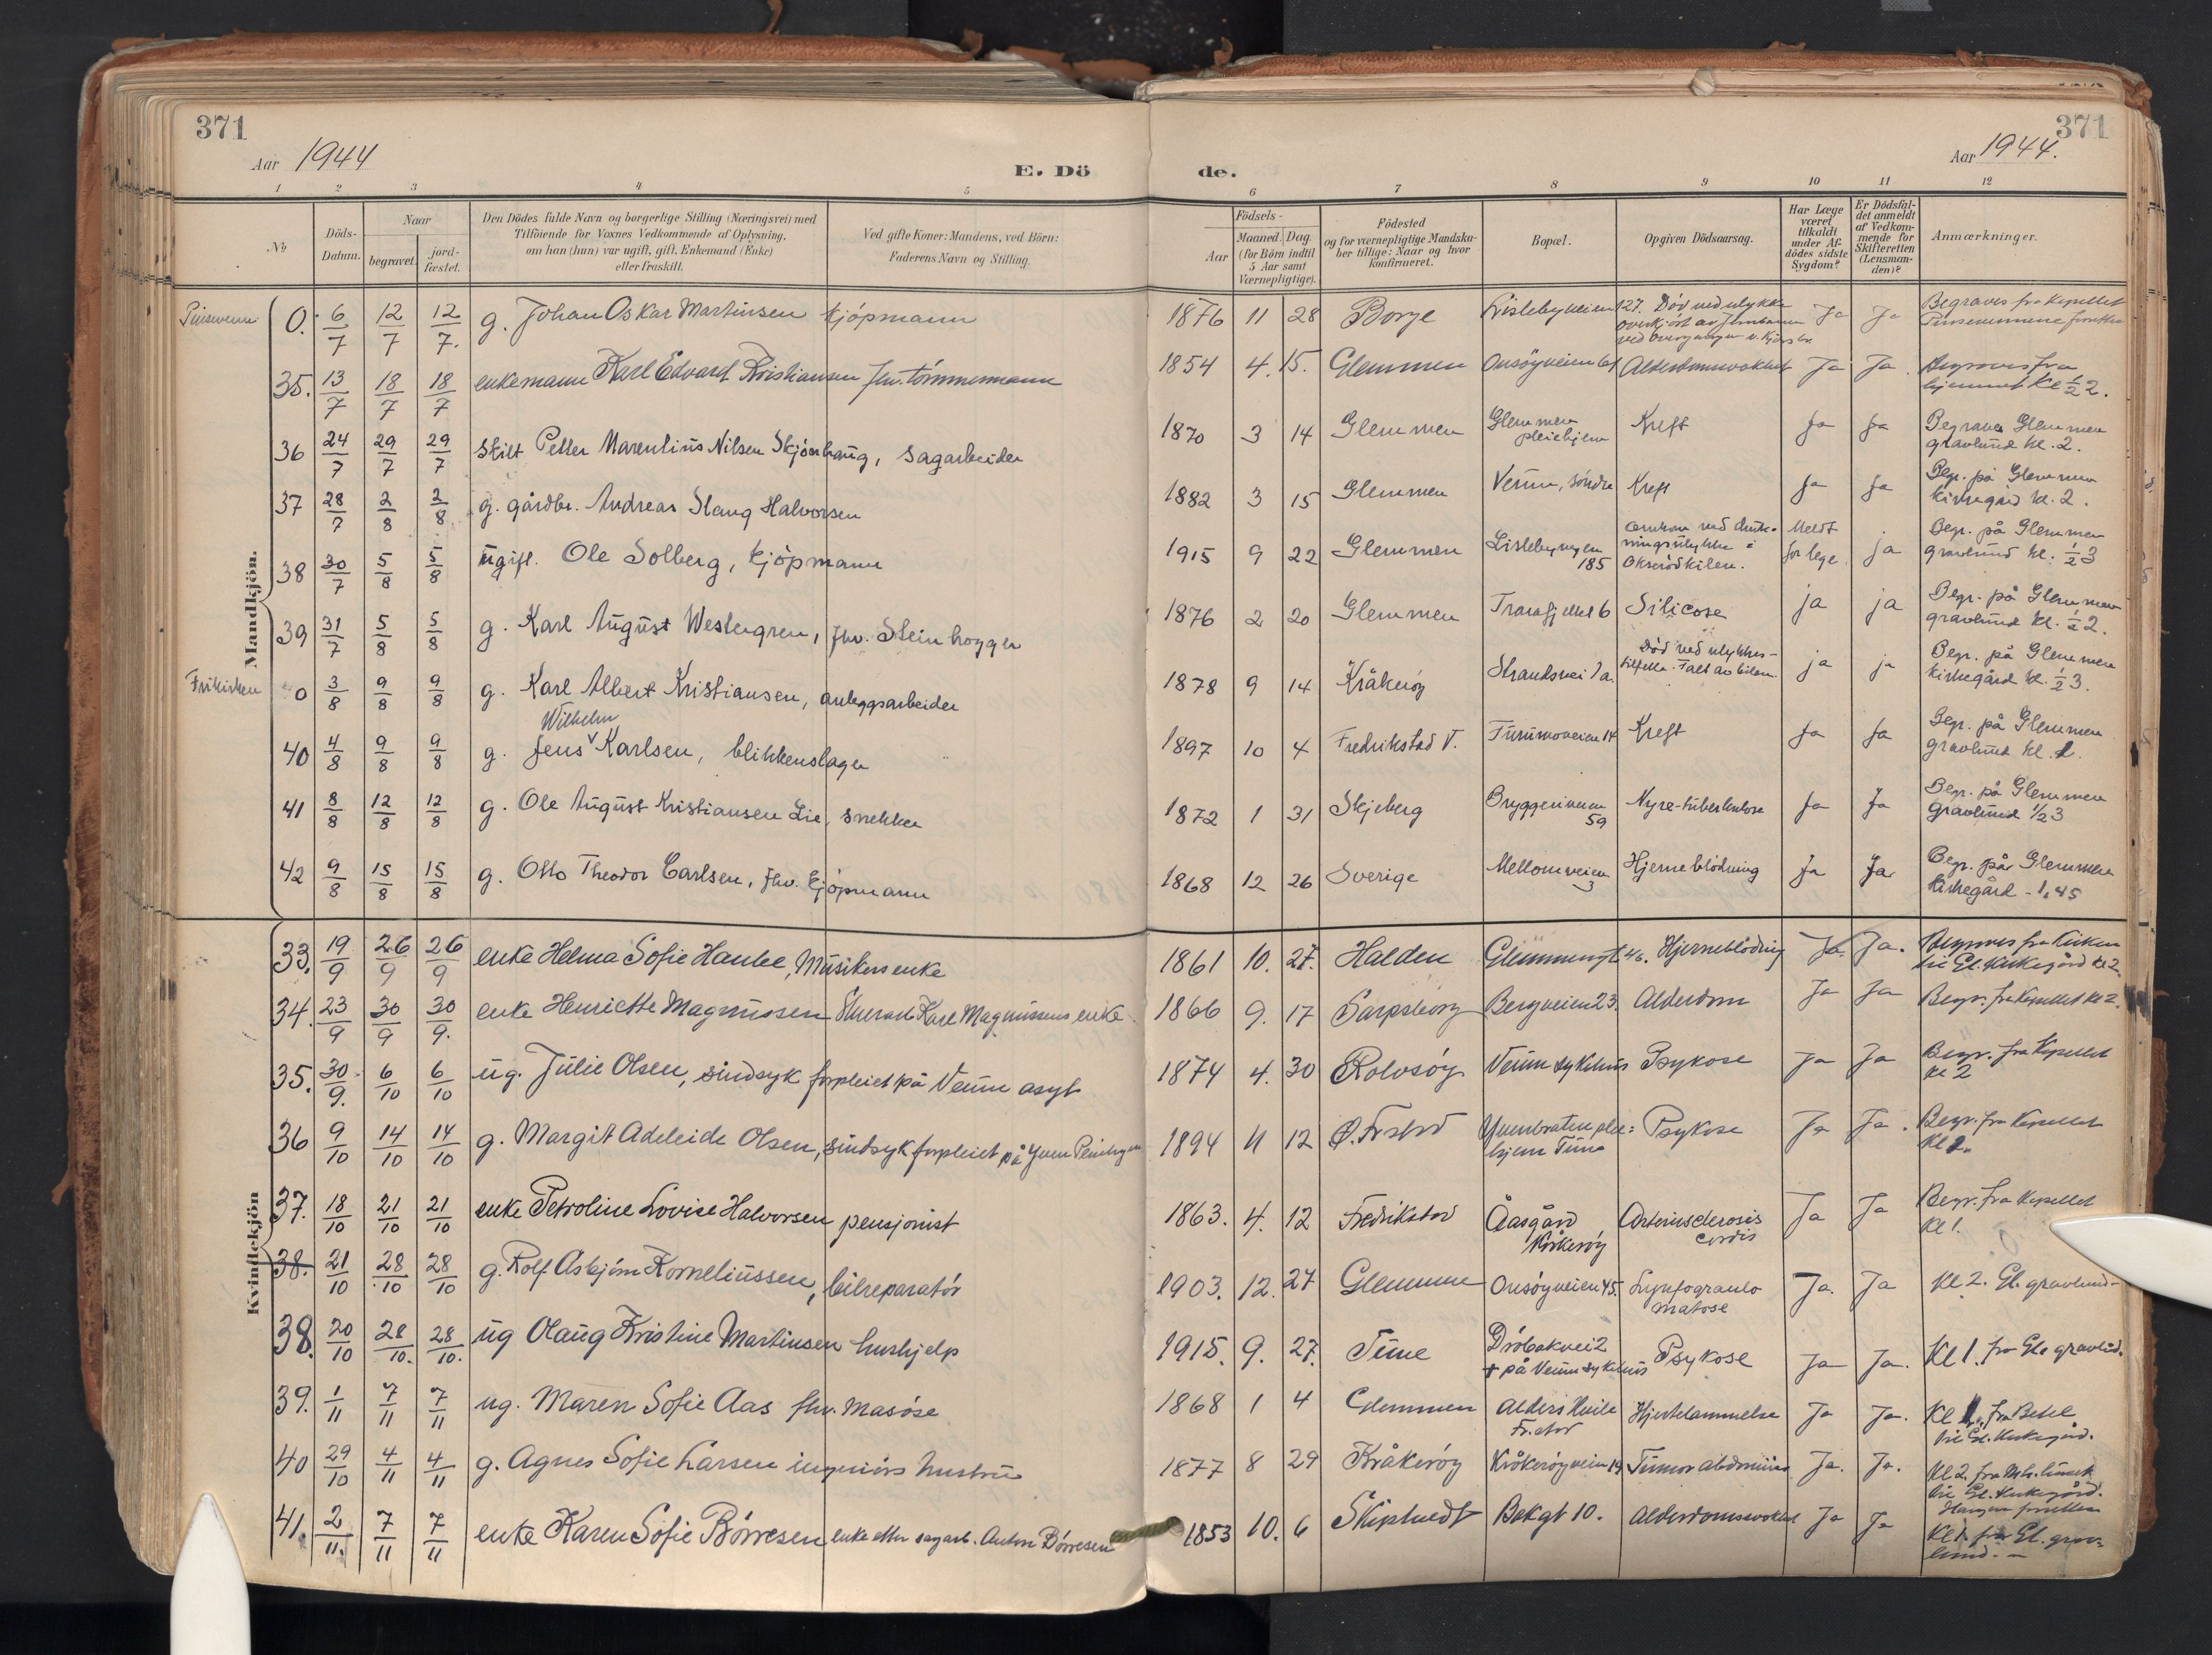 371
Aar 1944
E. Dö
1 2 3 4 5
No
Döds-Datum.
Naar
begravet.
jord-fæstet.
Den Dödes fulde Navn og borgerlige Stilling (Næringsvei) med
Tilföiende for Voxnes Vedkommende af Oplysning,
om han (hun) var ugift, gift, Enkemand (Enke)
eller fraskilt.
Ved gifte Koner: Mandens, ved Börn:
Faderens Navn og Stilling.
371
Aar 1944.
de.
6 7 8 9 10 11 12
Födsels-
Aar
Maaned. Dag.
(for Börn indtil
5 Aar samt
Værnepligtige).
Födested
og for værnepligtige Mandska-
ber tillige: Naar og hvor
konfirmeret.
Bopæl.
Opgiven Dödsaarsag.
Har Læge
været
tilkaldt
under Af-
dödes sidste
Sygdom?
Er Dödsfal-
det anmeldt
af Vedkom-
mende for
Skifteretten
(Lensman-
den)?
Anmærkninger.
Mandkjön.
Pinsevenn 0. 6/7 12/7 12/7. g. Johan Oskar Martinsen kjöpmann 1876 11 28 Borge Lislebyveien 127. Död ved ulykke Ja Ja Begraves fra Kapellet
overkjört av Jernbanen
35. 13/7 18/7 18/7 enkemann Karl Edvard Kristiansen fhv. tömmermann 1854 4. 15. Glemmen Onsöyveien Ja Ja. Begraves fra
hjemmet Kl ½ 2.
36 24/7 29/7 29/7 skilt Petter Marentius Nilsen Skjönhaug, sagarbeider 1870 3 14 Glemmen Glemmen pleiehjem Kreft Ja Ja Begraves Glemmen
gravlund kl. 2.
37 28/7 2/8 2/8 g. gårdbr. Andreas Slang Halvorsen 1882 3 15 Glemmen Veum, söndre Kreft Ja Ja Begr. på Glemmen
kirkegård kl. 2.
38 30/7 5/8 5/8 ugift. Ole Solberg, kjöpmann 1915 9 22 Glemmen Lislebyveien 185 omkom ved drukningsulykke i Meldt for lege ja Begr. på Glemmen
gravlund kl. ½ 3
39 31/7 5/8 5/8 g. Karl August Westergren, fhv. Steinhogger 1876 2 20 Glemmen Trarafjellet 6 Silicose ja ja Begr. på Glemmen
gravlund kl. ½ 2.
Frikirken 0 3/8 9/8 9/8 g. Karl Albert Kristiansen, anleggsarbeider 1878 9 14 Kråkeröy Strandvei 7a. Död ved ulykkes-tilfelle. Falt av bilen ja ja Begr. på Glemmen
kirkegård kl. ½ 3.
40 4/8 9/8 9/8 g. Jens Wilhelm Karlsen, blikkenslager 1897 10 4 Fredrikstad V. 14 Kreft Ja Ja Begr. på Glemmen
gravlund kl.
41 8/8 12/8 12/8 g. Ole August Kristiansen Lie, snekker 1872 1 31 Skjeberg Bryggeriveien 59 Nyre-tuberkulose Ja Ja Begr. på Glemmen
gravlund ½ 3
42 9/8 15/8 15/8 g. Otto Theodor Carlsen, fhv. kjöpmann 1868 12 26 Sverige Mellomveien 3 Hjerneblödning Ja Ja Begr. på Glemmen
kirkegård - 1,45
Kvindekjön
33. 19/9 26/9 26/9 enke Helma Sofie, Musikers enke 1861 10. 27. Halden Hjerneblödning Ja. Ja. Begraves fra Kirken
til Gl. Kirkegård kl 2.
34. 23/9 30/9 30/9. enke Henriette Magnussen Karl Magnussens enke 1866 9. 17 Sarpsborg Bergveien 23. Alderdom Ja Ja Begr. fra Kapellet kl 2.
35. 30/9. 6/10 6/10 ug. Julie Olsen, sindsyk forpleiet på Veum asyl 1874 4. 30 Rolvsöy Veum sykehus Psykose Ja Ja Begr. fra Kapellet
kl 2
36 9/10 14/10 14/10 g. Margit Adeleide Olsen, sindsyk forpleiet på 1894 11 12 Ö. Frstad hjem Tune Psykose Ja Ja. Begr. fra Kapellet
37. 18/10 21/10 21/10 enke Petroline Lovise Halvorsen pensjonist 1863. 4. 12 Fredrikstad Åasgård Kråkeröy Arteriosclerosis cordis Ja Ja Begr. fra Kapellet
Kl 1.
38. 21/10 28/10 28/10 g. Rolf Asbjörn Korneliussen, bilreparatör 1903. 12. 27 Glemmen Onsöyveien 45. Lymfogranulomatose Ja. Ja Kl 2. Gl. gravlund
38. 20/10 28/10. 28/10. ug Olaug Kristine Martinsen hushjelp 1915. 9. 27. Tune Dröbakvei 2 + på Veum sykehus Psykose Ja Ja. Kl 1. fra Gl. gravlund.
39. 1/11 7/11 7/11 ug. Maren Sofie Aas fhv. masöse 1868 1 4 Glemmen Alders Hvile Fr.stad Hjertelammelse Ja Ja. Kl 1. fra Betel
til Gl. Kirkegård.
40 29/10 4/11 4/11 g. Agnes Sofie Larsen ingeniörs hustru 1877 8 29 Kråkeröy Kråkeröyveien 19 Tumor abdominis Ja. Ja. Kl 2. fra
til Gl. Kirkegård.
41. 2/11. 7/11 7/11 enke Karen Sofie Börresen enke etter sagarb. Anton Börresen 1853 10. 6 Skiptvedt Bakgt 10. Ja Ja Kl 1. fra Gl. grav-
lund.